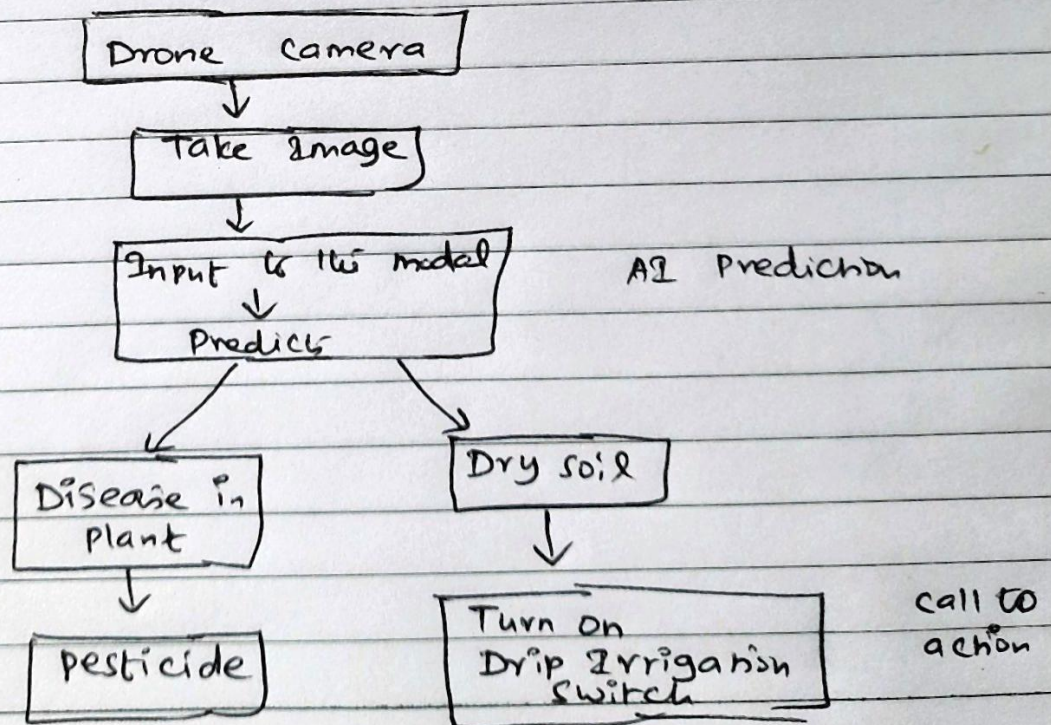 Drone Camera
Take Image
Input to the modal
AI Prediction
Predicts
Disease in
plant
Dry soil
pesticide
Turn on
Drip Irrigation
Switch
call to
action